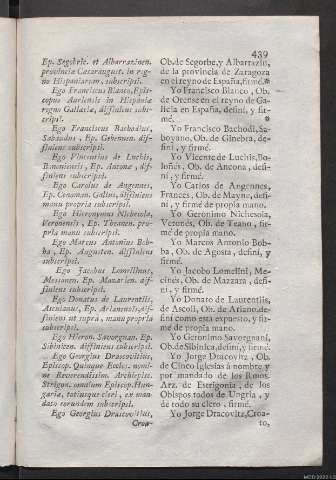 439
Ep. Segobric. et Albarrazinen.
provincia Cæsaraugust. in reg-
no Hispaniarum, subscripsi.
Ego Franciscus Blanco, Epis-
copus Auriensis in Hispaniæ
regno Gallæciæ, diffiniens subs-
cripsi.
Ego Franciscus Bachodius,
Sabaudus, Ep. Gebennen. dif-
finiens subscripsi.
Ego Vincentius de Luchis,
Bononiensis, Ep. Ancone, dif-
finiens subscripsi.
Ego Carolus de Angennes,
Ep. Cenoman. Gallus, diffiniens
manu propria subscripsi.
Ego Hieronymus Nichesola,
Veronensis, Ep. Theanen. pro-
pria manu subscripsi.
Ego Marcus Antonius Bob-
ba, Ep. Augusten. diffiniens
subscripsi.
Ego Jacobus Lomellinus,
Messanen. Ep. Mazarien. diffi-
niens subscripsi.
Ego Donatus de Laurentiis,
Asculanus, Ep. Arianensis, dif-
finiens ut supra, manu propria
subscripsi.
Ego Hieron. Savorgnan. Ep.
Sibinicen. diffiniens subscripsi.
Ego Georgius Dracovitius,
Episcop. Quinque Eccles. nomi-
ne Reverendissim. Archiepisc.
Strigon. omnium Episcop. Hun-
gariæ, totiusque cleri, ex man-
dato eorundem subscripsi.
Ego Georgius Dracovitius,
Croa-
Ob. de Segorbe, y Albarrazin,
de la provincia de Zaragoza
en el reyno de España, firmé.*
Yo Francisco Blanco, Ob.
de Orense en el reyno de Ga-
licia en España, definí, y fir-
mé. *
Yo Francisco Bachodi, Sa-
boyano, Ob. de Ginebra, de-
finí, y firmé.
Yo Vicente de Luchis, Bo-
loñés, Ob. de Ancona, definí,
y firmé.
Yo Carlos de Angennes,
Francés, Ob. de Mayne, defi-
ní, y firmé de propia mano.
Yo Geronimo Nichesola,
Veronés, Ob. de Teano, fir-
mé de propia mano.
Yo Marcos Antonio Bob-
ba, Ob. de Agosta, definí, y
firmé.
Yo Jacobo Lomelini, Me-
cinés, Ob. de Mazzara, defi-
ní, y firmé.
Yo Donato de Laurentiis,
de Ascoli, Ob. de Ariano, de-
finí como esta expuesto, y fir-
mé de propia mano.
Yo Geronimo Savorgnani,
Ob. de Sibinica, definí, y firmé.
Yo Jorge Dracovitz, Ob.
de Cinco Iglesias á nombre y
por mandado de los Rmos.
Arz. de Estrigonia, de los
Obispos todos de Ungria, y
de todo su clero, firmé.
Yo Jorge Dracovitz, Croa-
to,